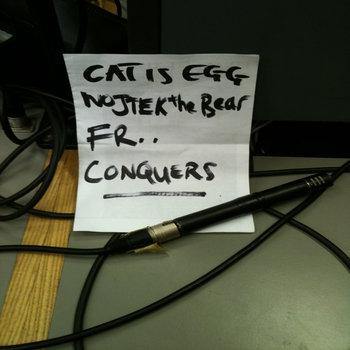 CAT IS EGG
WOJTEK the Bear
FR..
CONQUERS